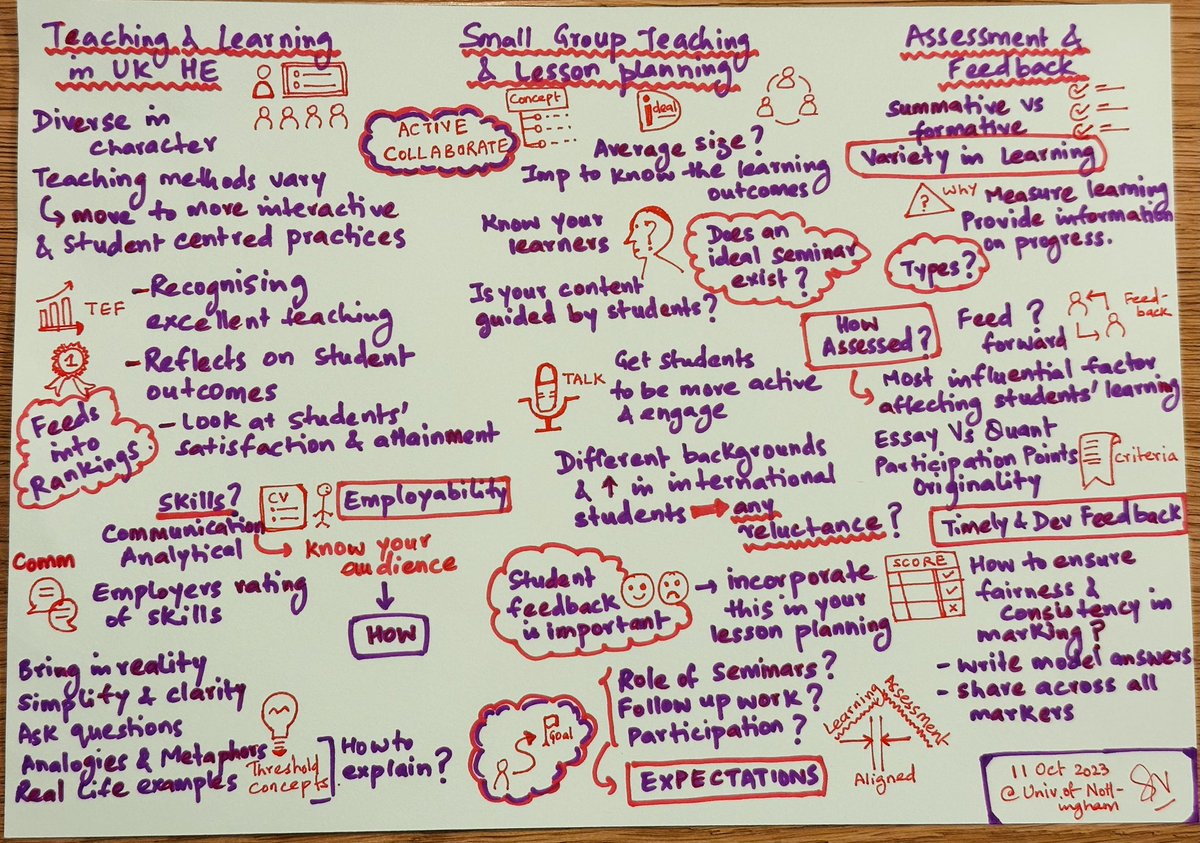 Teaching & Learning
in UK HE
Diverse in
character
Teaching methods vary
↳ move to more interactive
& student centred practices
TEF
- Recognising
excellent teaching
- Reflects on student
outcomes
- Look at students'
satisfaction & attainment
1
Feeds
into
Rankings.
Skills?
Communication
Analytical
CV
Employability
↳ know your
audience
HOW
Comm
Employers rating
of skills
Bring in reality
Simplify & clarity
Ask questions
Analogies & Metaphors
Real life examples
Threshold
concepts
How to
explain?
Small Group Teaching
& Lesson planning
ACTIVE
COLLABORATE
Concept
ideal
Average size?
Imp to know the learning
outcomes
Know your
learners
?
Does an
ideal seminar
exist?
Is your content
guided by students?
TALK
Get students
to be more active
& engage
Different backgrounds
& ↑ in international
students → any
reluctance?
Student
feedback
is important
→ incorporate
this in your
lesson planning
Goal
Role of Seminars?
Follow up work?
Participation?
EXPECTATIONS
Learning
Assessment
Aligned
Assessment &
Feedback
Summative vs
formative
Variety in Learning
?
WHY
Measure learning
Provide information
on progress.
Types?
How
Assessed?
Feed ?
forward
Feed-
back
↳ Most influential factor
affecting students' learning
Essay Vs Quant
Participation Points
Originality
Criteria
Timely & Dev Feedback
SCORE
How to ensure
fairness &
consistency in
marking?
- write model answers
- share across all
markers
11 Oct 2023
@ Univ. of Nott-
ingham